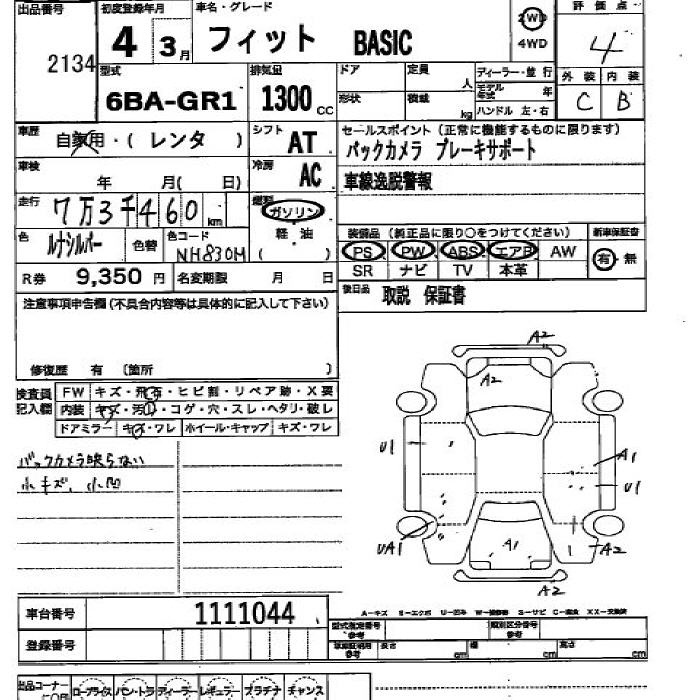 出品番号 初度登録年月 車名・グレード 2WD 評価点
2134 4 3月 フィット BASIC 4WD 4
型式 排気量 ドア 定員 人 ディーラー・並行 外装 内装
6BA-GR1 1300cc 形状 積載 kg モデル年式 年 C B
ハンドル 左・右
車歴 自家用・(レンタ) シフト AT セールスポイント(正常に機能するものに限ります)
バックカメラ ブレーキサポート
車検 年 月( 日) 冷房 AC 車線逸脱警報
走行 7万3千460km 燃料 ガソリン
軽・油
( )
色 ルナシルバー 色替 色コード NH830M 装備品(純正品に限り○をつけてください) 新車保証書
PS PW ABS エアB AW 有・無
SR ナビ TV 本革
R券 9,350円 名変期限 月 日 後日品 取説 保証書
注意事項申告欄(不具合内容等は具体的に記入して下さい)
修復歴 有 〔箇所 〕
検査員記入欄 FW キズ・飛石・ヒビ割・リペア跡・X要
内装 キズ・汚れ・コゲ・穴・スレ・ヘタリ・破レ
ドアミラー キズ・ワレ ホイール・キャップ キズ・ワレ
バックカメラ映らない
小キズ、小凹
A2
A2
U1
A1
U1
UA1
A1
A2
A2
車台番号 1111044
登録番号
A-キズ E-エクボ U-凹み W-補修跡 S-サビ C-腐食 XX-交換済
型式指定番号 参考 類別区分番号 参考
車庫証明用 参考 長さ cm 幅 cm 高さ cm
出品コーナー ロープライス バントラ ディーラー レギュラー プラチナ チャンス